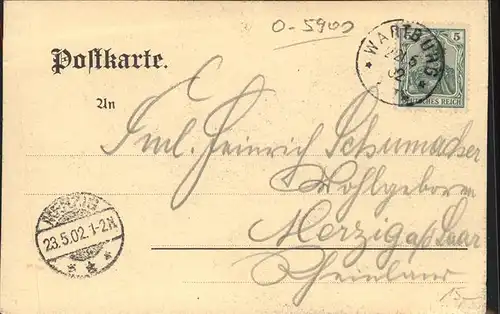 O-5900
Postkarte.
WARTBURG
5
DEUTSCHES REICH
An
Heinrich Schumacher
Wohlgeboren
Merzig a/ Saar
Rheinland
MERZIG
23.5.02.1-2N
15,-